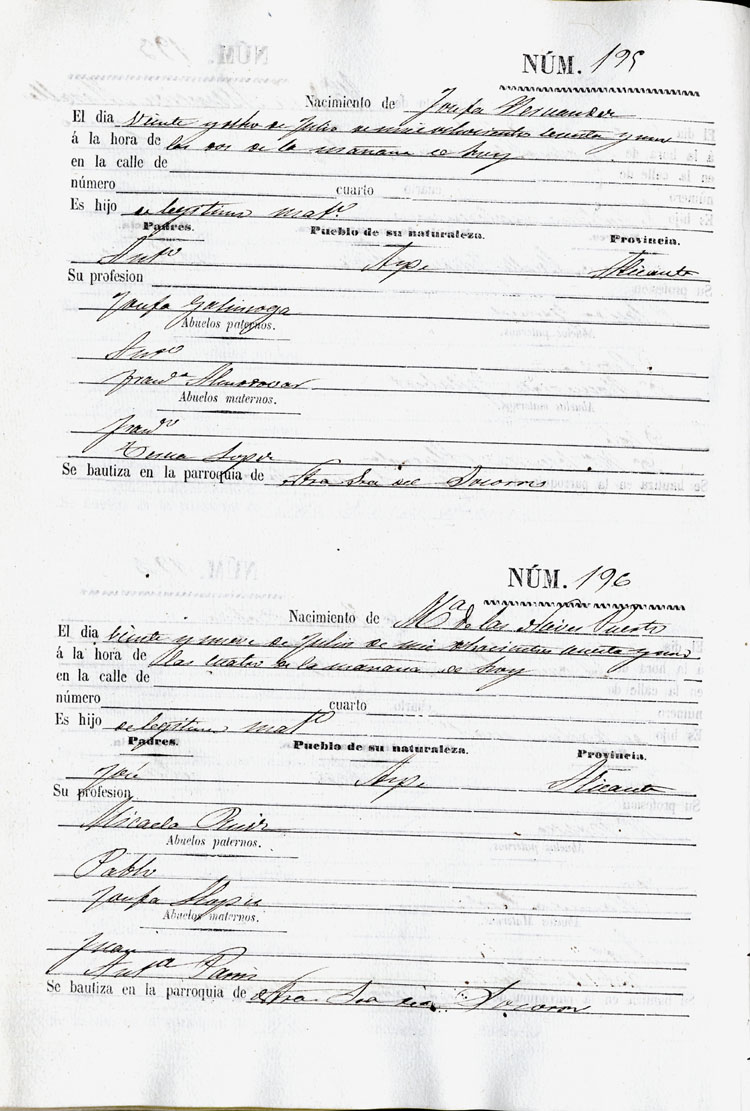 NÚM. 195
Nacimiento de Josefa Hernandez
El dia veinte y ocho de Julio de mil ochocientos y uno
á la hora de las dos de la mañana de hoy
en la calle de
número cuarto
Es hijo de legítimo mat.º
Padres. Pueblo de su naturaleza. Provincia.
Ant.º Aspe Alicante
Su profesion
Josefa Galinsoga
Abuelos paternos.
Ant.º
Fran.ca Almodovar
Abuelos maternos.
Fran.co
Teresa Lopez
Se bautiza en la parroquia de Ntra Sra del Socorro
NÚM. 196
Nacimiento de M.ª de las Nieves Puerto
El dia veinte y nueve de Julio de mil ochocientos y uno
á la hora de las cuatro de la mañana de hoy
en la calle de
número cuarto
Es hijo de legítimo mat.º
Padres. Pueblo de su naturaleza. Provincia.
José Aspe Alicante
Su profesion
Micaela Ruiz
Abuelos paternos.
Pablo
Josefa
Abuelos maternos.
Juan
Ant.ª
Se bautiza en la parroquia de Ntra Sra del Socorro